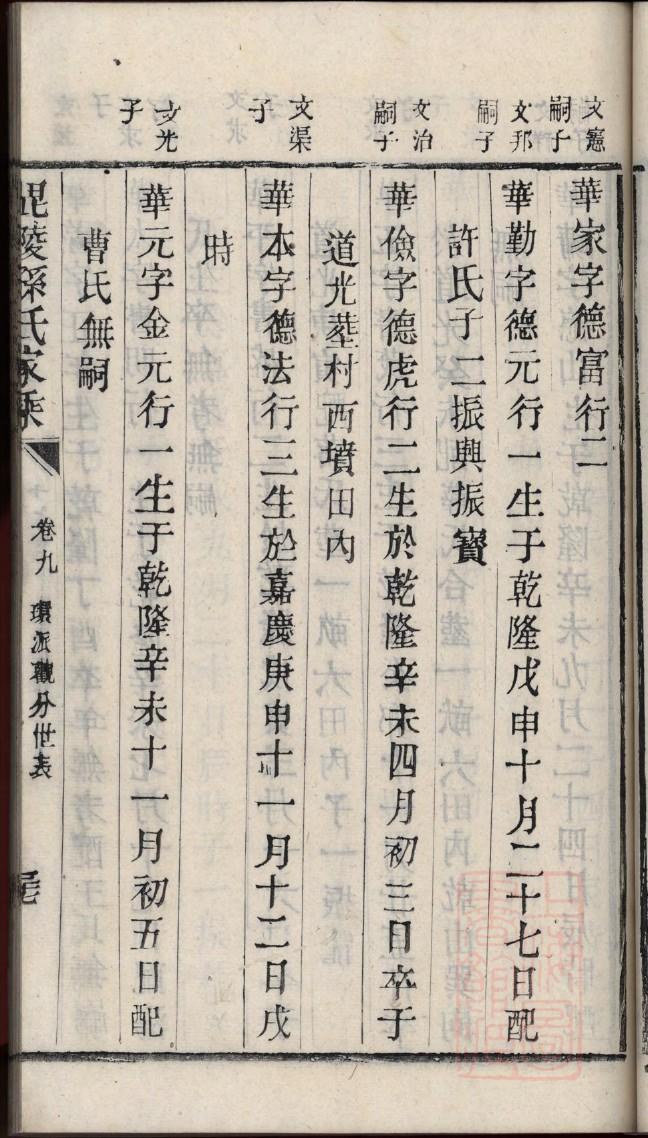 文憲嗣子
華家字德富行二
文邦嗣子
華勤字德元行一生于乾隆戊申十月二十七日配
許氏子二振興振寶
文治嗣子
華儉字德虎行二生於乾隆辛未四月初三日卒于
道光塟村西墳田內
文渠子
華本字德法行三生於嘉慶庚申十一月十二日戌
時
文光子
華元字金元行一生于乾隆辛未十一月初五日配
曹氏無嗣
毘陵孫氏家乘
卷九 環派觀分世表